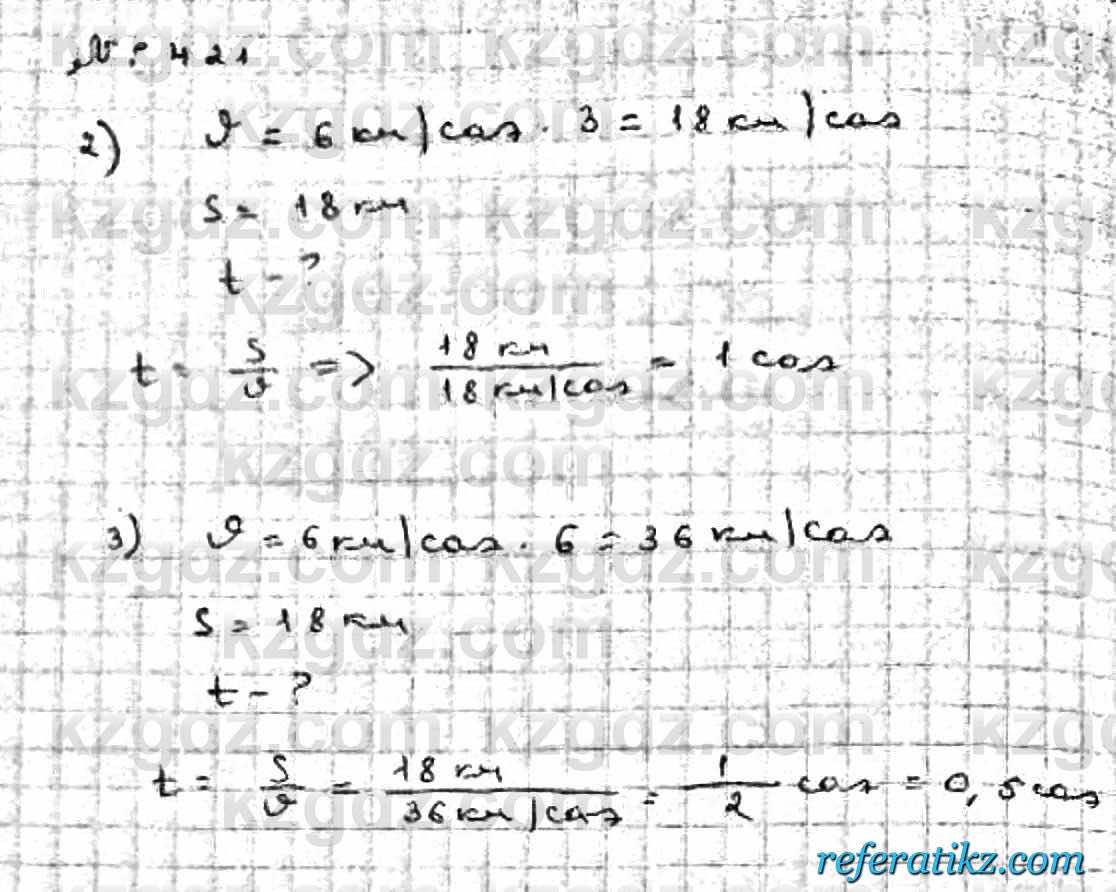 № 421
2) υ = 6 км/сағ · 3 = 18 км/сағ
s = 18 км
t - ?
t = s/υ => 18 км / 18 км/сағ = 1 сағ
3) υ = 6 км/сағ · 6 = 36 км/сағ
s = 18 км
t - ?
t = s/υ = 18 км / 36 км/сағ = 1/2 сағ = 0,5 сағ
referatikz.com